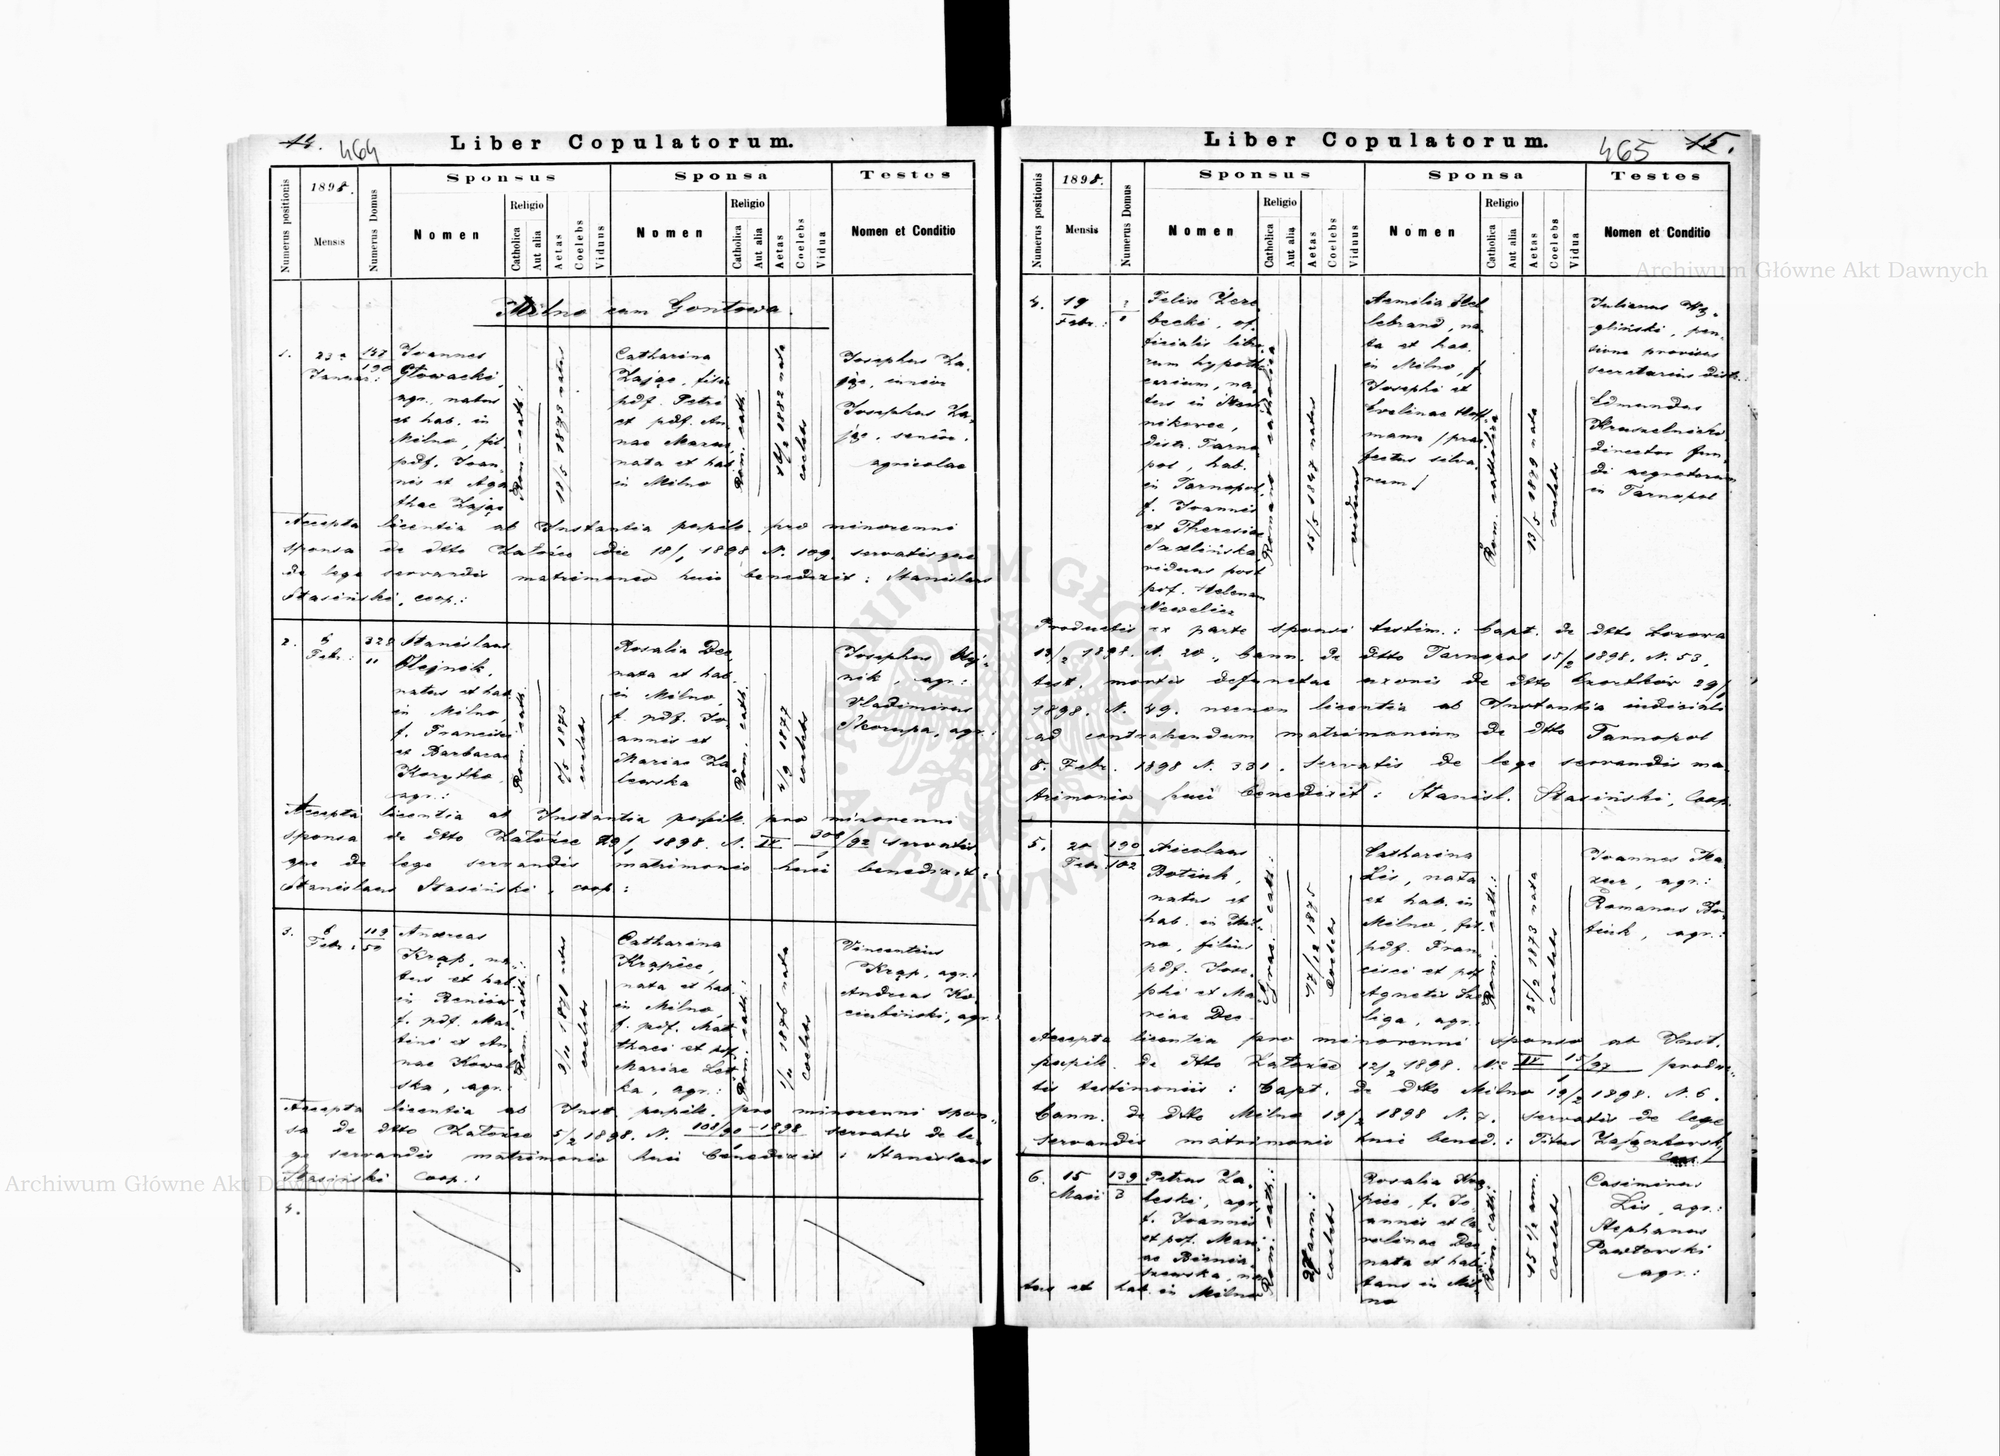 14. 464
Liber Copulatorum.
Numerus positionis
1898.
Mensis
Numerus Domus
Sponsus
Nomen
Religio
Catholica
Aut alia
Aetas
Coelebs
Viduus
Sponsa
Nomen
Religio
Catholica
Aut alia
Aetas
Coelebs
Vidua
Testes
Nomen et Conditio
Milno cum Gontowa.
1.
23a
Januar:
147
190
Joannes
Głowacki,
agr., natus
et hab. in
Milno, fil.
pdf. Joan
nis et Aga
thae Zając
Rom-cath:
18/5 1873 natus
Catharina
Zając, filia
pdf. Petri
et pdf. An
nae Mazur
nata et hab
in Milno
Rom. cath.
1882 nata
coelebs
Josephus Za
jąc, junior
Josephus Za
jąc, senior.
agricolae
Accepta licentia ab Instantia pupil. pro minorenni
sponsa de dtto Załoźce die 18/1 1898 N. 109. servatisque
de lege servandis matrimonio huic benedixit: Stanislaus
Stasiński, coop.:
2.
Febr:
328
11
Stanislaus
Olejnik,
natus et hab.
in Milno,
f. Francisci
et Barbarae
Korytko,
agr.:
Rom. cath.
5/5 1873
coelebs
Rosalia Dec,
nata et hab.
in Milno,
f. pdf. Jo
annis et
Mariae Za
lewska
Rom. cath.
4/9 1877
coelebs
Josephus Olej-
nik, agr.:
Vladimirus
Skorupa, agr.:
Accepta licentia ab Instantia pupil. pro minorenni
sponsa de dtto Załoźce 29/1 1898. N. IV 308/92 servatis
que de lege servandis matrimonio huic benedixit:
Stanislaus Stasiński, coop:
3.
6
Febr:
119
50
Andreas
Krąp, na
tus et hab.
in Beniów
f. pdf. Mar
tini et An
nae Kowal
ska, agr.
Rom. cath:
9/11 1871 natus
coelebs
Catharina
Krąpiec,
nata et hab.
in Milno,
f. pdf. Mat
thaei et pdf.
Mariae
agr.:
Rom. cath.:
1/11 1876 nata
coelebs
Vincentius
Krąp, agr.:
Andreas Ko
ciubiński, agr.
Accepta licentia ab Inst. pupil. pro minorenni spon
sa de dtto Załoźce 5/2 1898. N. 108/90-1898 servatis de le-
ge servandis matrimonio huic benedixit: Stanislaus
Stasiński coop.:
4.
465 15.
Liber Copulatorum.
Numerus positionis
1898.
Mensis
Numerus Domus
Sponsus
Nomen
Religio
Catholica
Aut alia
Aetas
Coelebs
Viduus
Sponsa
Nomen
Religio
Catholica
Aut alia
Aetas
Coelebs
Vidua
Testes
Nomen et Conditio
4.
19
Febr:
Felix Zere
becki, of
ficialis libro
rum hypoth
ecarium, na
tus in
distr. Tarno
pol, hab.
in Tarnopol,
f. Joannis
et Theresiae
viduus post
pdf. Helenam
Romano catholica
15/5 1847 natus
viduus
Aemilia Hil
lebrand, na
ta et hab.
in Milno, f
Josephi et
Evelinae Hoff
mann /prae
fectus silva
rum/
Rom. catholica
13/5 1879 nata
coelebs
Julianus
gliński, pen
sione provisus
secretarius distr.:
Edmundus
director fun
di
in Tarnopol
Productis ex parte sponsi testim.: bapt. de dtto
13/2 1898. N. 20, bann. de dtto Tarnopol 15/2 1898. N. 53,
test. mortis defunctae uxoris de dtto 29/1
1898. N. 49. necnon licentia ab Instantia judiciali
ad contrahendum matrimonium de dtto Tarnopol
8. Febr. 1898 N. 331. servatis de lege servandis ma
trimonio huic benedixit: Stanisl. Stasiński, Coop.
5.
20
Febr.
190
102
Nicolaus
Botiuk,
natus et
hab. in Mil
no, filius
pdf. Jose
phi et Ma
riae Dec
Graec. cath.:
17/12 1875
Coelebs
Catharina
Lis, nata
et hab. in
Milno, fil.
pdf. Fran
cisci et pdf.
Agnetis Sze
liga, agr.
Rom.-cath.:
25/2 1873 nata
coelebs
Joannes Ma
zur, agr.:
Romanus Bo-
tiuk, agr.:
Accepta licentia pro minorenni sponso ab Inst.
pupil. de dtto Załoźce 12/2 1898. N. IV 15/97 produc-
tis testimoniis: bapt. de dtto Milno 19/2 1898. N. 6.
bann. de dtto Milno 19/2 1898 N. 7. servatis de lege
servandis matrimonio huic bened.: Titus
6.
15
Maii
139
3
Petrus Za
leski, agr,
f. Joannis
et pdf. Mari
ae Biernia
szewska, na
tus et hab. in Milno
Rom. cath.:
27 ann.:
coelebs
Rosalia Krą
piec, f. Jo
annis et Ca
rolinae Dec
nata et habi
tans in Mil
no
Rom. cath.
15 1/2 ann.
coelebs
Casimirus
Lis, agr.:
Stephanus
Pawłowski
agr.:
Archiwum Główne Akt Dawnych
Archiwum Główne Akt Dawnych
ARCHIWUM GŁÓWNE AKT DAWNYCH